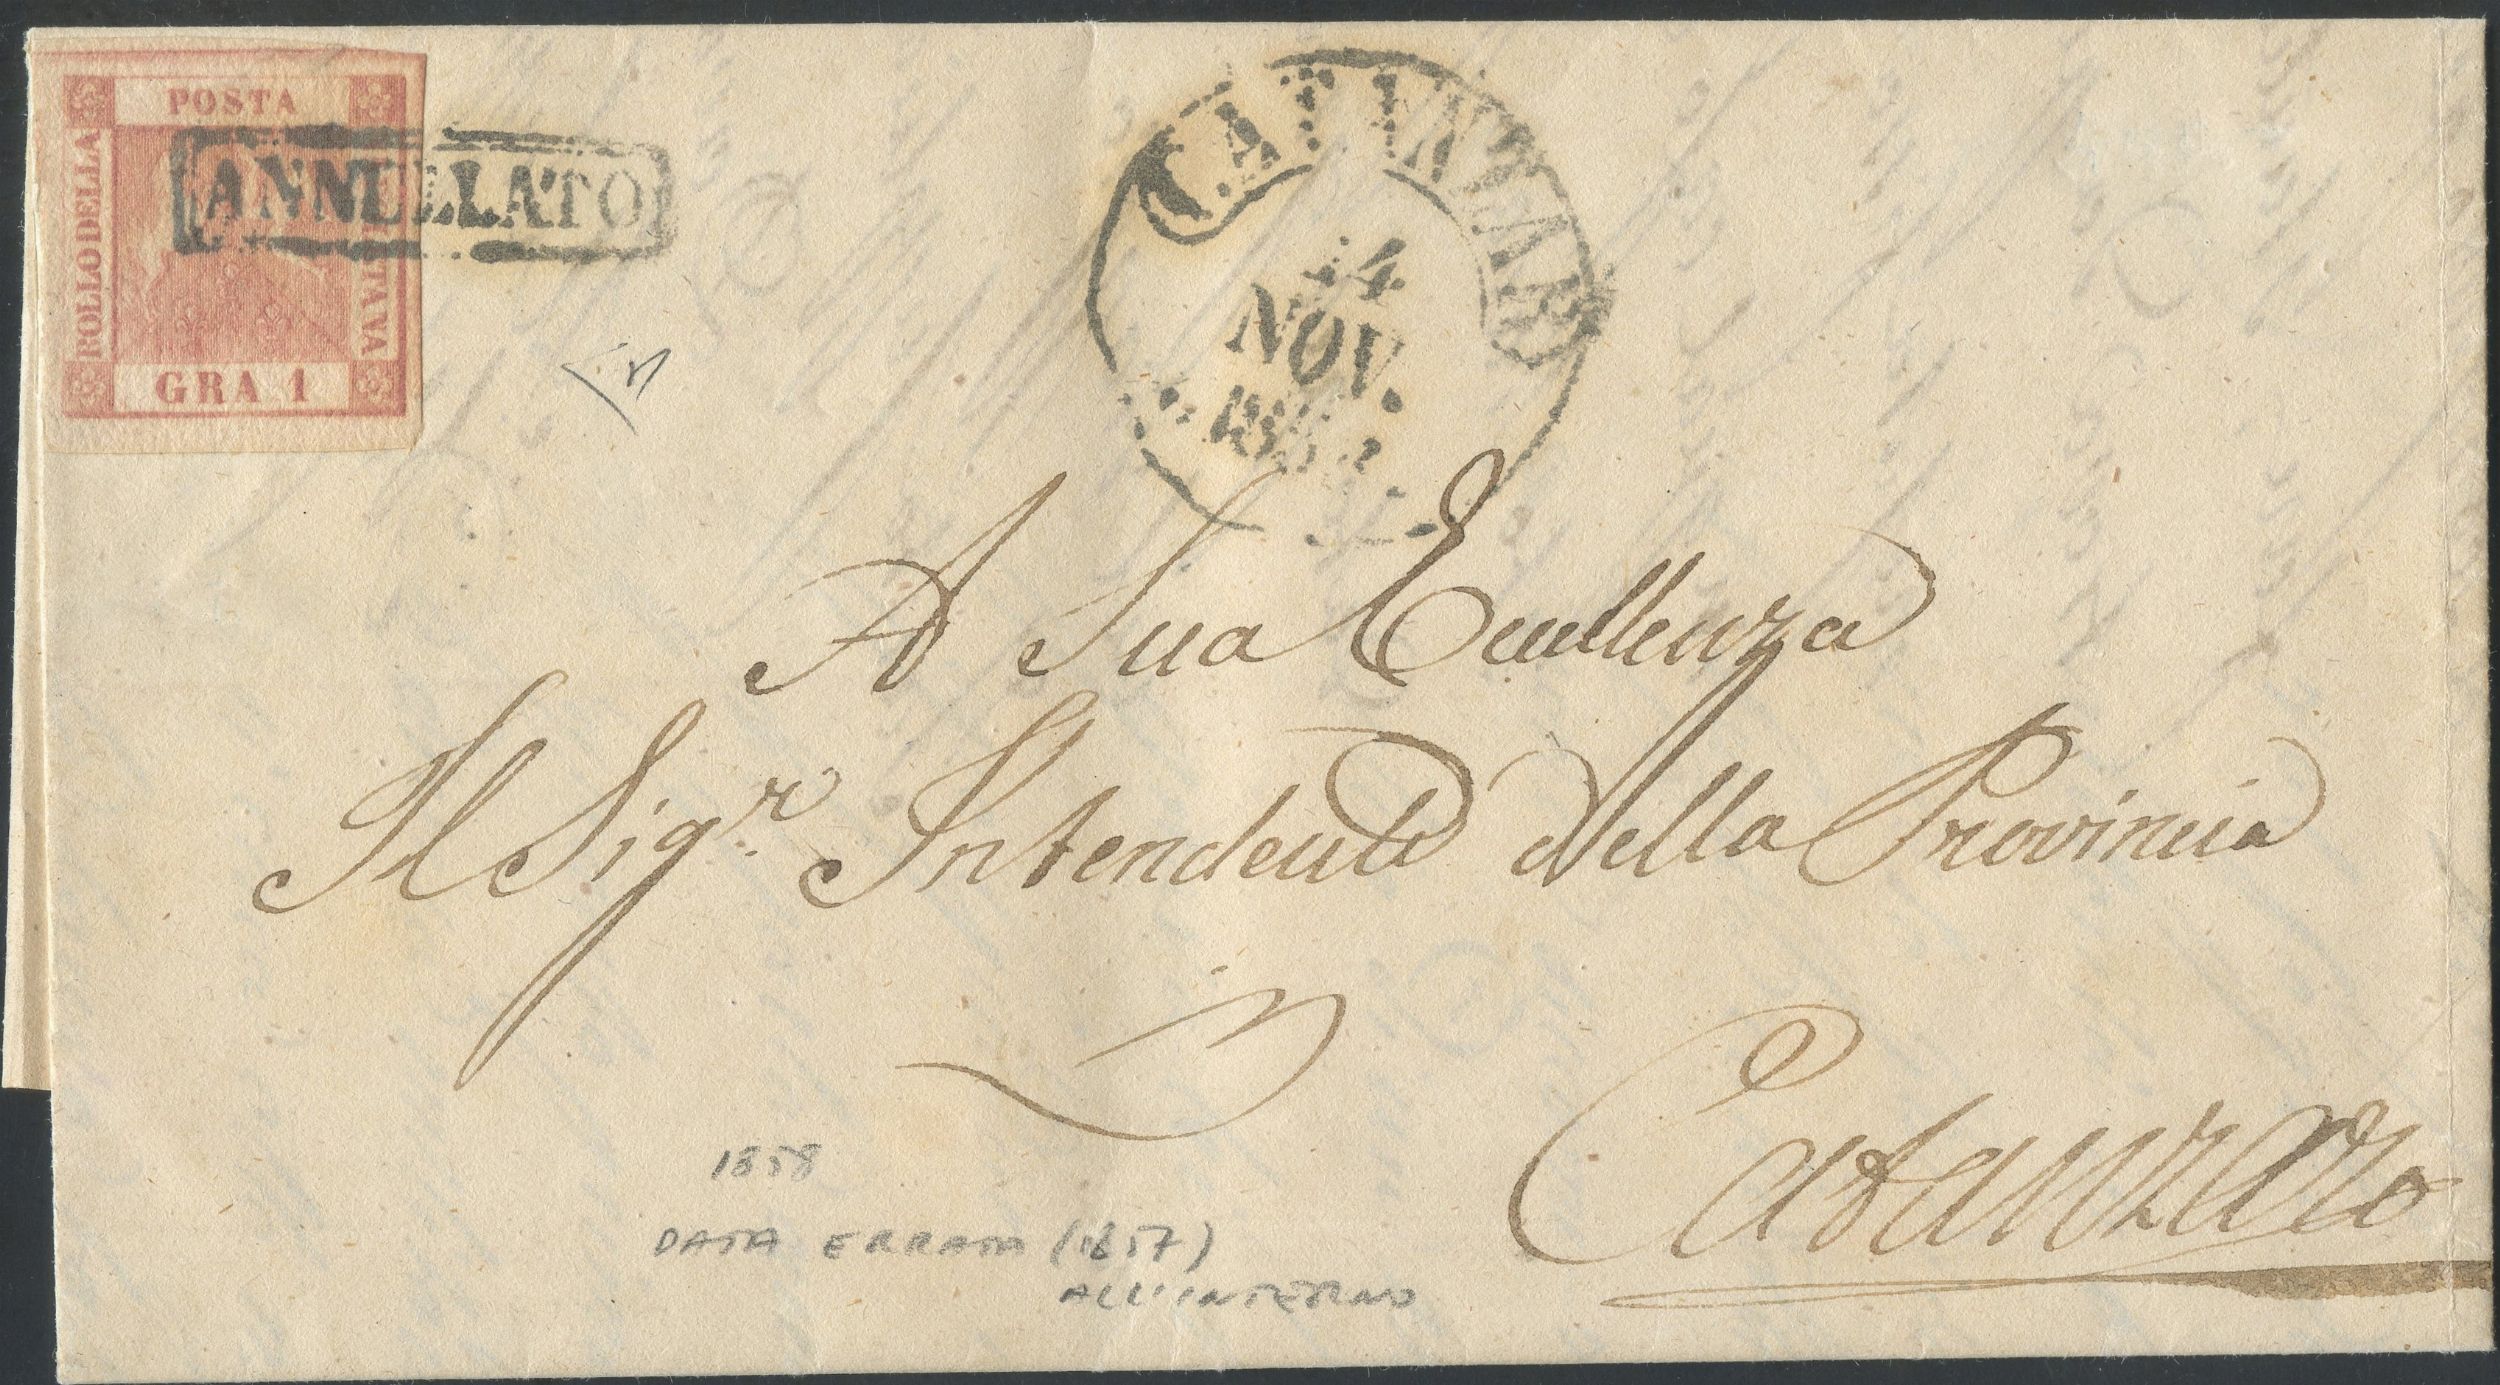 POSTA
BOLLO DELLA
GRA 1
ANNULLATO
14
NOV.
A Sua Eccellenza
Il Sigr. Intendente della Provincia
Catanzaro
1858
DATA ERRATA (1857)
ALL'INTERNO